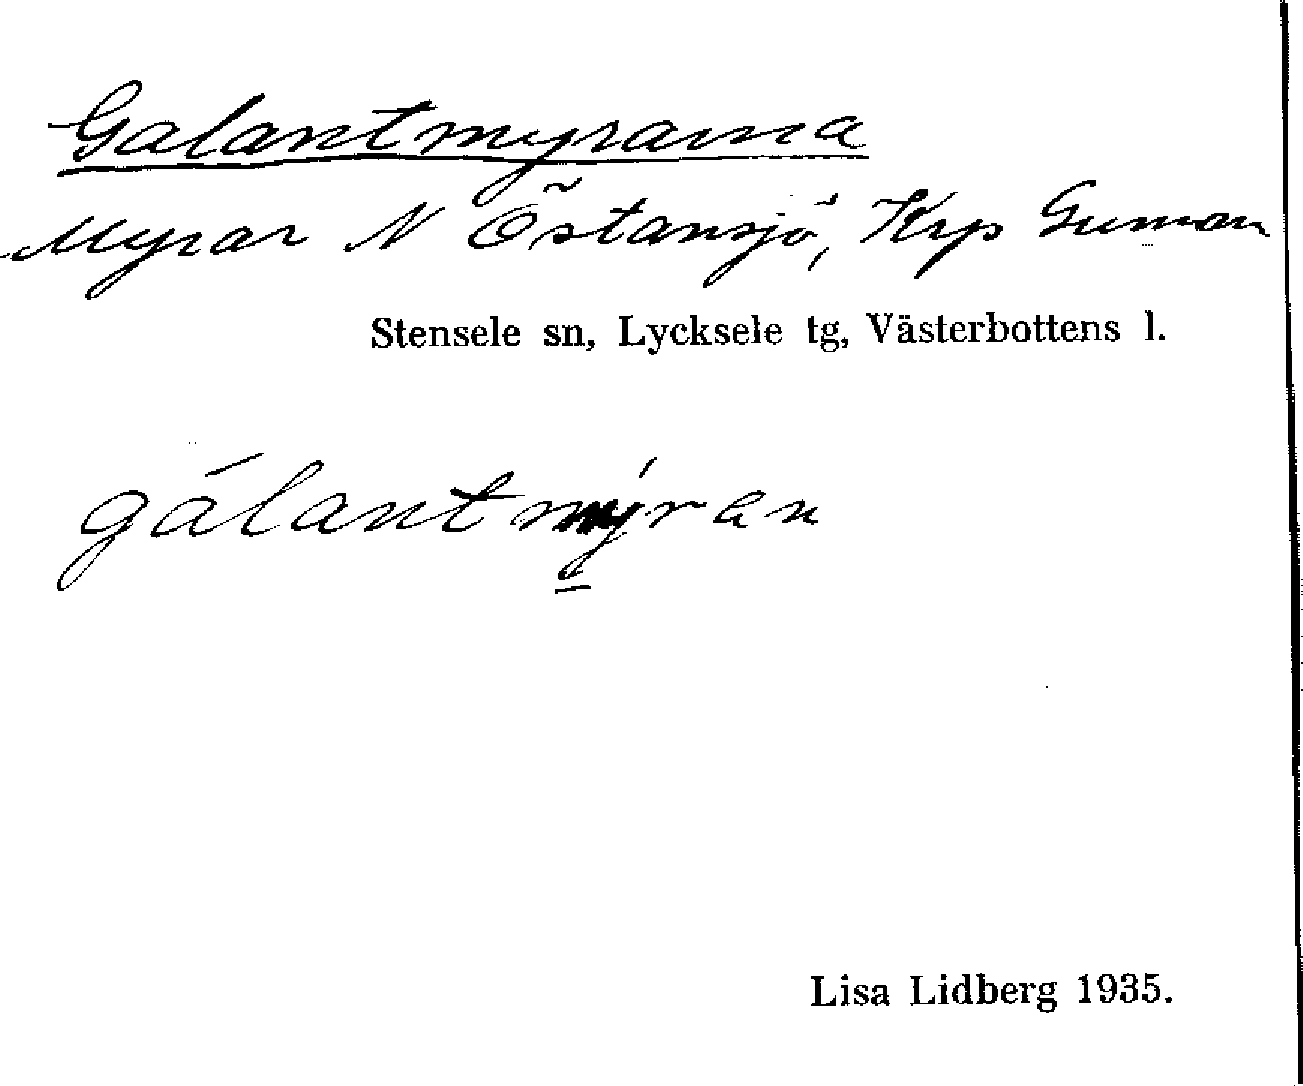 Galantmyrarna
Myrar N Östansjö, Krp Gunnarn
Stensele sn, Lycksele tg, Västerbottens l.
gálantmýran
Lisa Lidberg 1935.